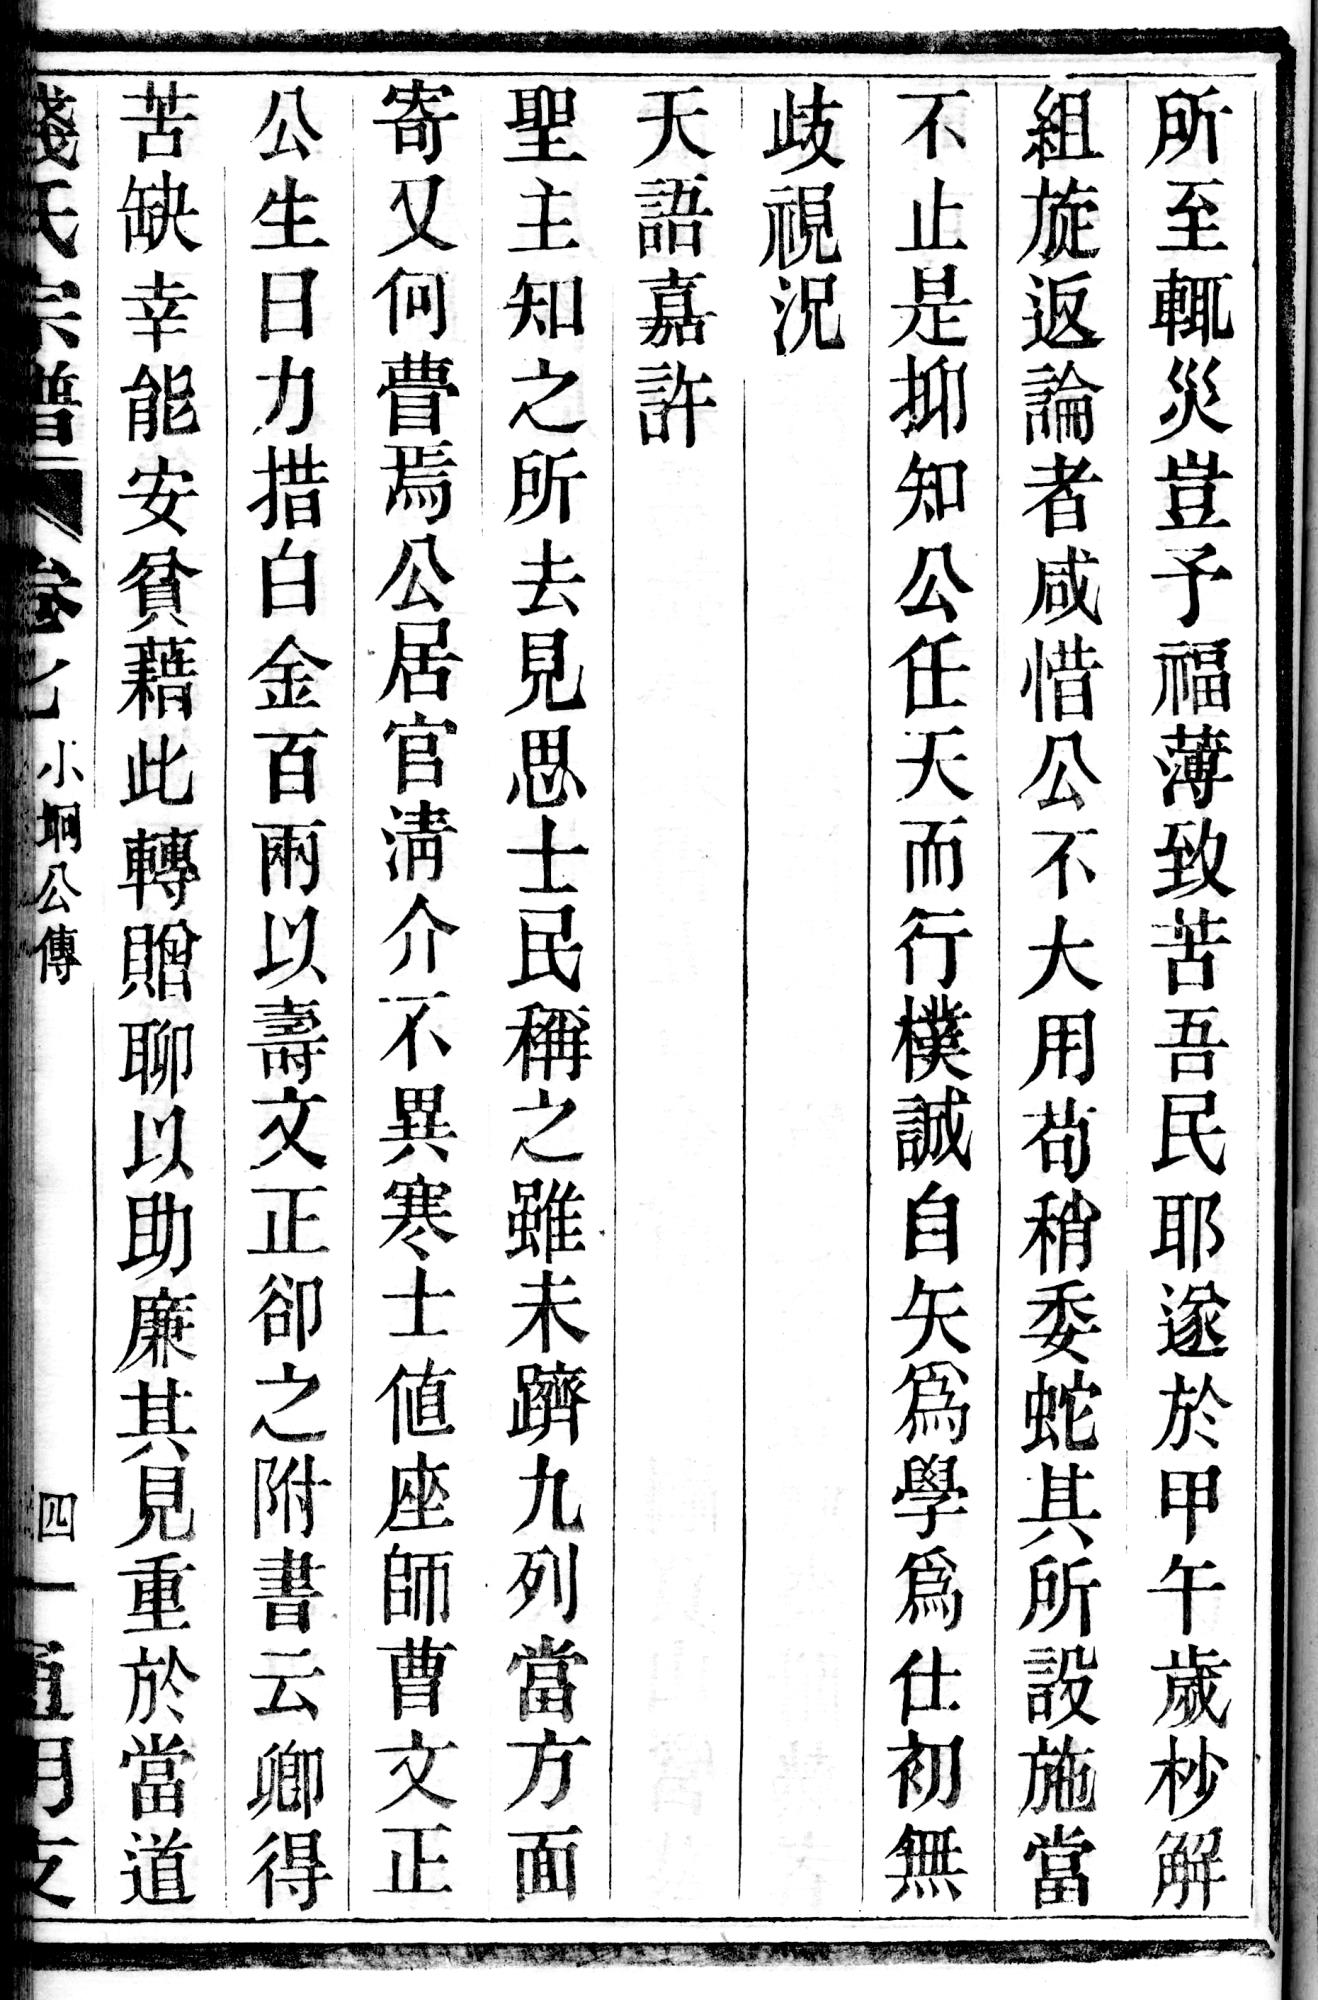 所至輒災豈予福薄致苦吾民耶遂於甲午歲杪解
組旋返論者咸惜公不大用苟稍委蛇其所設施當
不止是抑知公任天而行樸誠自矢爲學爲仕初無
歧視況
天語嘉許
聖主知之所去見思士民稱之雖未躋九列當方面
寄又何瞢焉公居官淸介不異寒士値座師曹文正
公生日力措白金百兩以壽文正卻之附書云卿得
苦缺幸能安貧藉此轉贈聊以助廉其見重於當道
氏宗譜 卷 小坰公傳 四